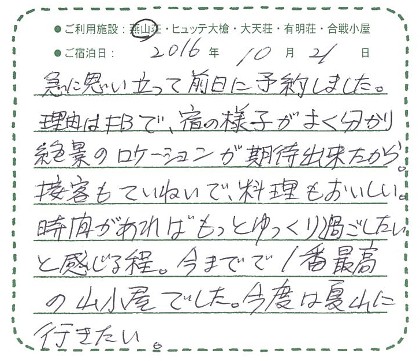 ●ご利用施設：燕山荘・ヒュッテ大槍・大天荘・有明荘・合戦小屋
●ご宿泊日： 2016 年 10 月 21 日
急に思い立って前日に予約しました。
理由はFBで、宿の様子がよく分かり
絶景のロケーションが期待出来たから。
接客もていねいで、料理もおいしい。
時間があればもっとゆっくり過ごしたい
と感じる程。今までで1番最高
の山小屋でした。今度は夏山に
行きたい。